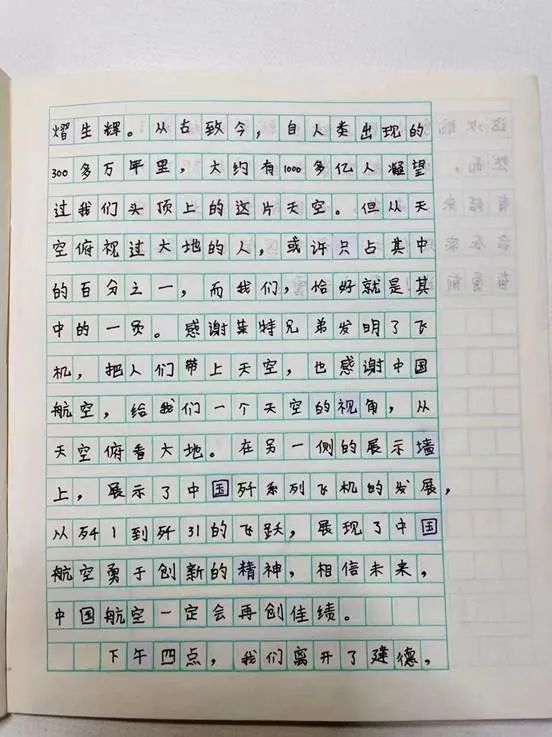 熠生辉。从古致今，自人类出现的
300多万年里，大约有1000多亿人凝望
过我们头顶上的这片天空。但从天
空俯视过大地的人，或许只占其中
的百分之一，而我们，恰好就是其
中的一员。感谢莱特兄弟发明了飞
机，把人们带上天空，也感谢中国
航空，给我们一个天空的视角，从
天空俯看大地。在另一侧的展示墙
上，展示了中国歼系列飞机的发展，
从歼1到歼31的飞跃，展现了中国
航空勇于创新的精神，相信未来，
中国航空一定会再创佳绩。
下午四点，我们离开了建德，